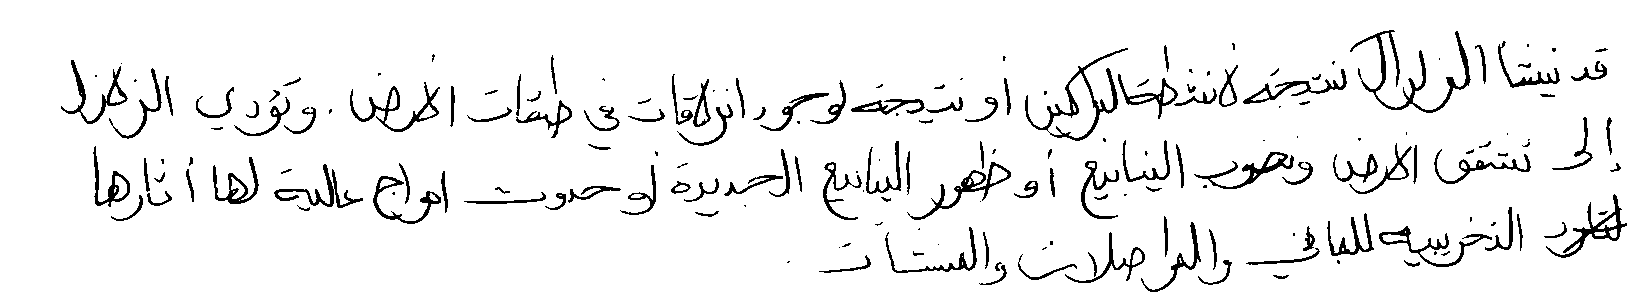 قد ينشأ الزلزال نتيجة لانشطة البراكين أو نتيجة لوجود انزلاقات في طبقات الأرض . وتؤدي الزلازل
إلى تشقق الأرض ونضوب الينابيع أو ظهور الينابيع الجديدة أو حدوث امواج عالية لها أثارها
التخريبية للمباني والمواصلات والمنشآت .